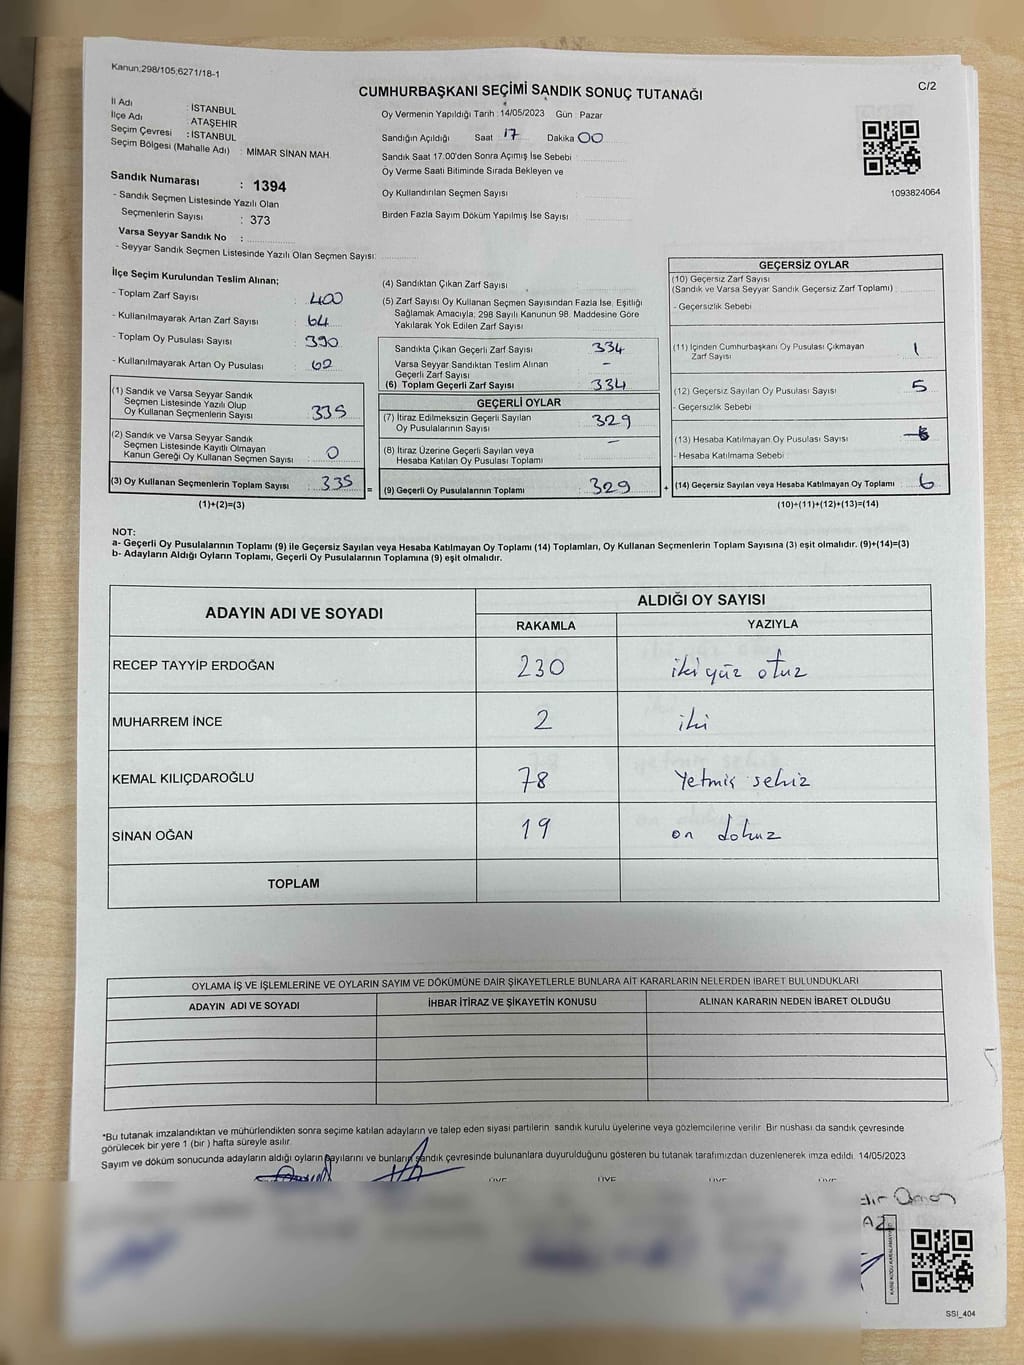 Kanun;298/105;6271/18-1
C/2
CUMHURBAŞKANI SEÇİMİ SANDIK SONUÇ TUTANAĞI
İl Adı : İSTANBUL
İlçe Adı : ATAŞEHİR
Seçim Çevresi : İSTANBUL
Seçim Bölgesi (Mahalle Adı) : MİMAR SİNAN MAH.
Sandık Numarası : 1394
- Sandık Seçmen Listesinde Yazılı Olan
Seçmenlerin Sayısı : 373
Varsa Seyyar Sandık No :
- Seyyar Sandık Seçmen Listesinde Yazılı Olan Seçmen Sayısı:
Oy Vermenin Yapıldığı Tarih : 14/05/2023 Gün : Pazar
Sandığın Açıldığı Saat 17 Dakika 00
Sandık Saat 17:00'den Sonra Açımış İse Sebebi :
Oy Verme Saati Bitiminde Sırada Bekleyen ve
Oy Kullandırılan Seçmen Sayısı :
Birden Fazla Sayım Döküm Yapılmış İse Sayısı :
1093824064
İlçe Seçim Kurulundan Teslim Alınan;
- Toplam Zarf Sayısı : 400
- Kullanılmayarak Artan Zarf Sayısı : 64
- Toplam Oy Pusulası Sayısı : 390
- Kullanılmayarak Artan Oy Pusulası :
(1) Sandık ve Varsa Seyyar Sandık
Seçmen Listesinde Yazılı Olup
Oy Kullanan Seçmenlerin Sayısı : 335
(2) Sandık ve Varsa Seyyar Sandık
Seçmen Listesinde Kayıtlı Olmayan
Kanun Gereği Oy Kullanan Seçmen Sayısı : 0
(3) Oy Kullanan Seçmenlerin Toplam Sayısı : 335 =
(1)+(2)=(3)
(4) Sandıktan Çıkan Zarf Sayısı :
(5) Zarf Sayısı Oy Kullanan Seçmen Sayısından Fazla İse, Eşitliği
Sağlamak Amacıyla; 298 Sayılı Kanunun 98. Maddesine Göre
Yakılarak Yok Edilen Zarf Sayısı :
Sandıkta Çıkan Geçerli Zarf Sayısı : 334
Varsa Seyyar Sandıktan Teslim Alınan
Geçerli Zarf Sayısı : -
(6) Toplam Geçerli Zarf Sayısı : 334
GEÇERLİ OYLAR
(7) İtiraz Edilmeksizin Geçerli Sayılan
Oy Pusulalarının Sayısı : 329
(8) İtiraz Üzerine Geçerli Sayılan veya
Hesaba Katılan Oy Pusulası Toplamı : -
(9) Geçerli Oy Pusulalarının Toplamı : 329 +
GEÇERSİZ OYLAR
(10) Geçersiz Zarf Sayısı
(Sandık ve Varsa Seyyar Sandık Geçersiz Zarf Toplamı) :
- Geçersizlik Sebebi
(11) İçinden Cumhurbaşkanı Oy Pusulası Çıkmayan
Zarf Sayısı : 1
(12) Geçersiz Sayılan Oy Pusulası Sayısı : 5
- Geçersizlik Sebebi
(13) Hesaba Katılmayan Oy Pusulası Sayısı :
- Hesaba Katılmama Sebebi
(14) Geçersiz Sayılan veya Hesaba Katılmayan Oy Toplamı : 6
(10)+(11)+(12)+(13)=(14)
NOT:
a- Geçerli Oy Pusulalarının Toplamı (9) ile Geçersiz Sayılan veya Hesaba Katılmayan Oy Toplamı (14) Toplamları, Oy Kullanan Seçmenlerin Toplam Sayısına (3) eşit olmalıdır. (9)+(14)=(3)
b- Adayların Aldığı Oyların Toplamı, Geçerli Oy Pusulalarının Toplamına (9) eşit olmalıdır.
ADAYIN ADI VE SOYADI
ALDIĞI OY SAYISI
RAKAMLA YAZIYLA
RECEP TAYYİP ERDOĞAN 230 iki yüz otuz
MUHARREM İNCE 2 iki
KEMAL KILIÇDAROĞLU 78 Yetmiş sekiz
SİNAN OĞAN 19 on dokuz
TOPLAM
OYLAMA İŞ VE İŞLEMLERİNE VE OYLARIN SAYIM VE DÖKÜMÜNE DAİR ŞİKAYETLERLE BUNLARA AİT KARARLARIN NELERDEN İBARET BULUNDUKLARI
ADAYIN ADI VE SOYADI İHBAR İTİRAZ VE ŞİKAYETİN KONUSU ALINAN KARARIN NEDEN İBARET OLDUĞU
*Bu tutanak imzalandıktan ve mühürlendikten sonra seçime katılan adayların ve talep eden siyasi partilerin sandık kurulu üyelerine veya gözlemcilerine verilir. Bir nüshası da sandık çevresinde
görülecek bir yere 1 (bir ) hafta süreyle asılır.
Sayım ve döküm sonucunda adayların aldığı oyların sayılarını ve bunların sandık çevresinde bulunanlara duyurulduğunu gösteren bu tutanak tarafımızdan düzenlenerek imza edildi. 14/05/2023
SSI_404